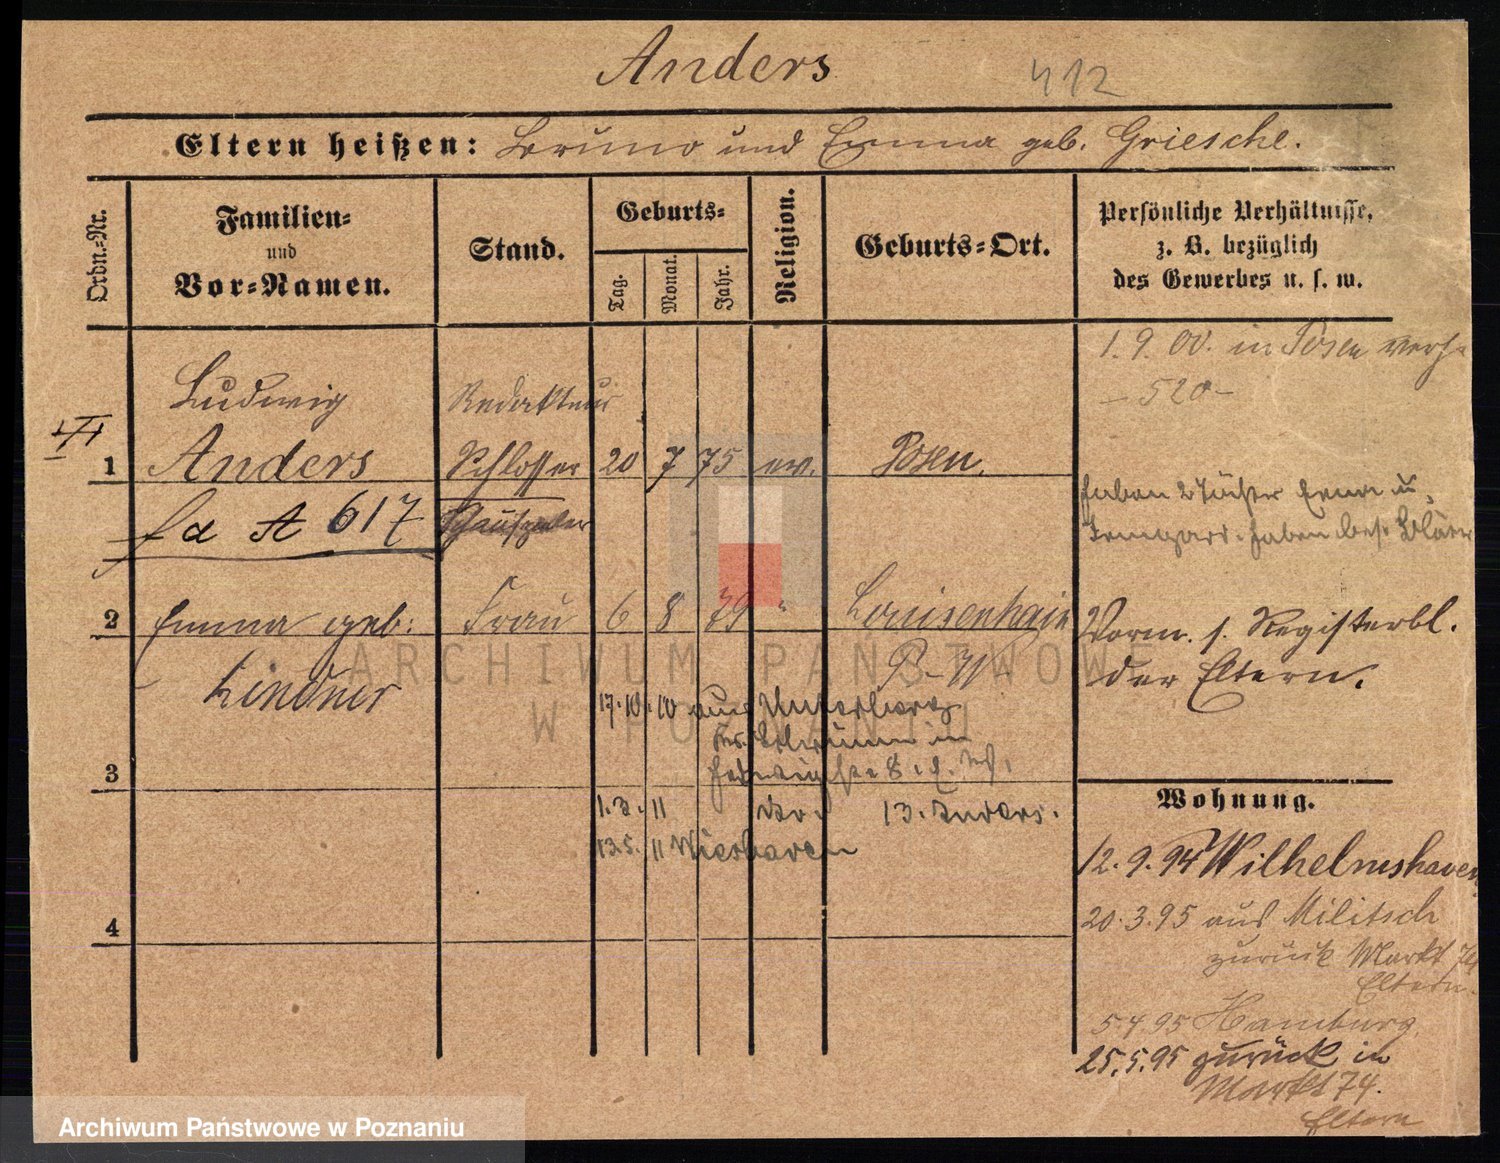 Anders 412
Eltern heißen: Bruno und Emma geb. Griesche.
Ordn.-Nr.
Familien-
und
Vor-Namen.
Stand.
Geburts-
Tag.
Monat.
Jahr.
Religion.
Geburts-Ort.
Persönliche Verhältnisse,
z. B. bezüglich
des Gewerbes u. s. w.
1.9.00. in Posen verh.
- 520 -
Ludwig Redakteur
1 Anders Schlosser 20 7 75 ev. Posen.
A 617 Schauspieler
haben 2 Töchter Erna u.
Irmgard. haben bes. Blätter
2 Emma geb. Frau 6 8 79 " Louisenhain
Lindner
Vorm. s. Registerbl.
der Eltern.
17.10.10 aus
in
3
1.3.11 13. Anders.
13.5.11
4
Wohnung.
12.9.94 Wilhelmshaven
20.3.95 aus Militsch
zurück Markt 74
Eltern.
5.4.95 Hamburg
25.5.95 zurück in
Markt 74.
Eltern
ARCHIWUM PAŃSTWOWE
W POZNANIU
Archiwum Państwowe w Poznaniu